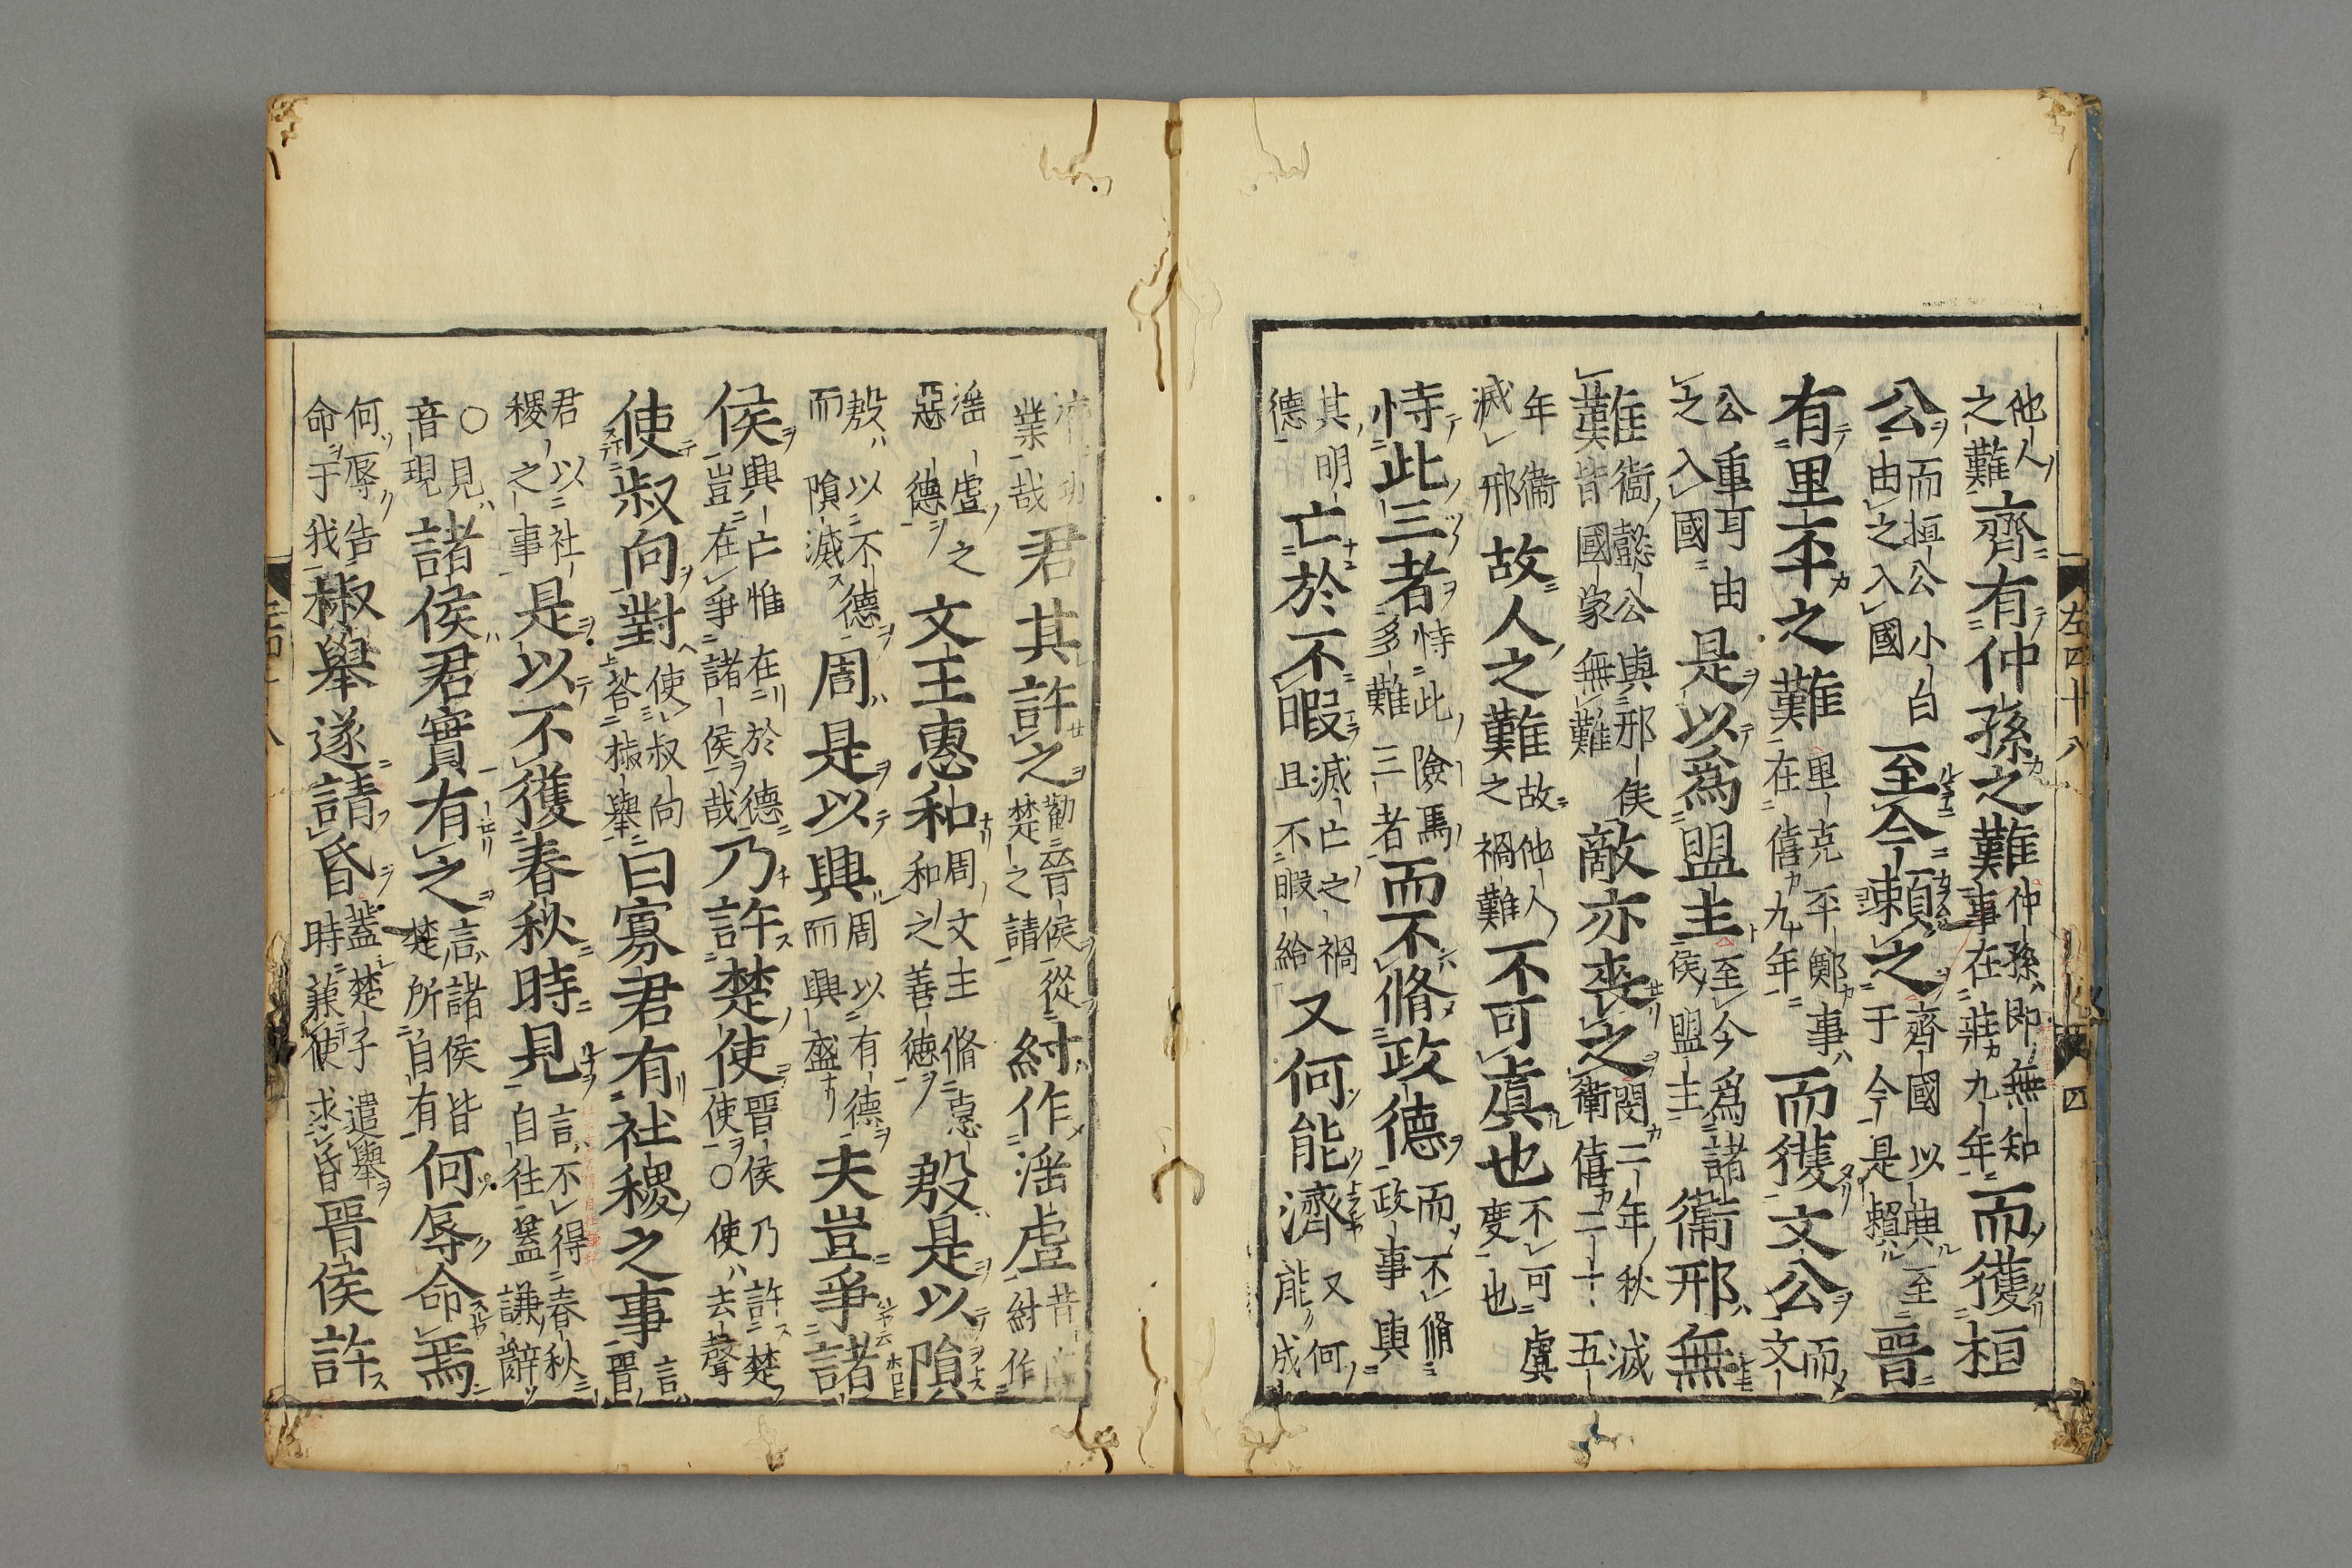 左四十八 四
他人之難齊有仲孫之難仲孫即無知事在莊九年而獲桓
公而桓公小白由之入國至今賴之齊國以興至于今是賴晉
有里丕之難里克丕鄭事在僖九年而獲文公而文
公重耳由之入國是以爲盟主至今爲諸侯盟主衞邢無
難衞懿公與邢侯皆國家無難敵亦喪之閔二年秋滅衞僖二十五
年衞滅邢故人之難故他人之禍難不可虞也不可虞度也
恃此三者恃此險馬多難三者而不脩政德而不脩政事與
其明德亡於不暇滅亡之禍且不暇給又何能濟又何能成
濟功業哉君其許之勸晉侯從楚之請紂作淫虐昔商紂作
淫虐之惡德文王惠和周文王脩惠和之善德殷是以隕
殷以不德而隕滅周是以興周以有德而興盛夫豈爭諸
侯興亡惟在於德豈在爭諸侯哉乃許楚使晉侯乃許楚使○使去聲
使叔向對使叔向荅椒舉曰寡君有社稷之事言晉
君以社稷之事是以不獲春秋時見言不得春秋自往蓋謙辭
○見音現諸侯君實有之言諸侯皆楚所自有何辱命焉
何辱告命于我椒舉遂請昏蓋楚子遣舉時兼使求昏晉侯許